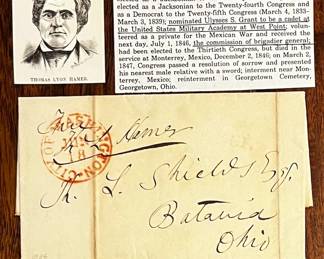 elected as a Jacksonian to the Twenty-fourth Congress and
as a Democrat to the Twenty-fifth Congress (March 4, 1833–
March 3, 1839); nominated Ulysses S. Grant to be a cadet at
the United States Military Academy at West Point; volun-
teered as a private for the Mexican War and received the
next day, July 1, 1846, the commission of brigadier general;
had been elected to the Thirtieth Congress, but died in the
service at Monterrey, Mexico, December 2, 1846; on March 2,
1847, Congress passed a resolution of sorrow and presented
his nearest male relative with a sword; interment near Mon-
terrey, Mexico; reinterment in Georgetown Cemetery,
Georgetown, Ohio.
THOMAS LYON HAMER.
Free
Hamer
CITY OF WASHINGTON
L. Shields Esq.
Batavia
Ohio